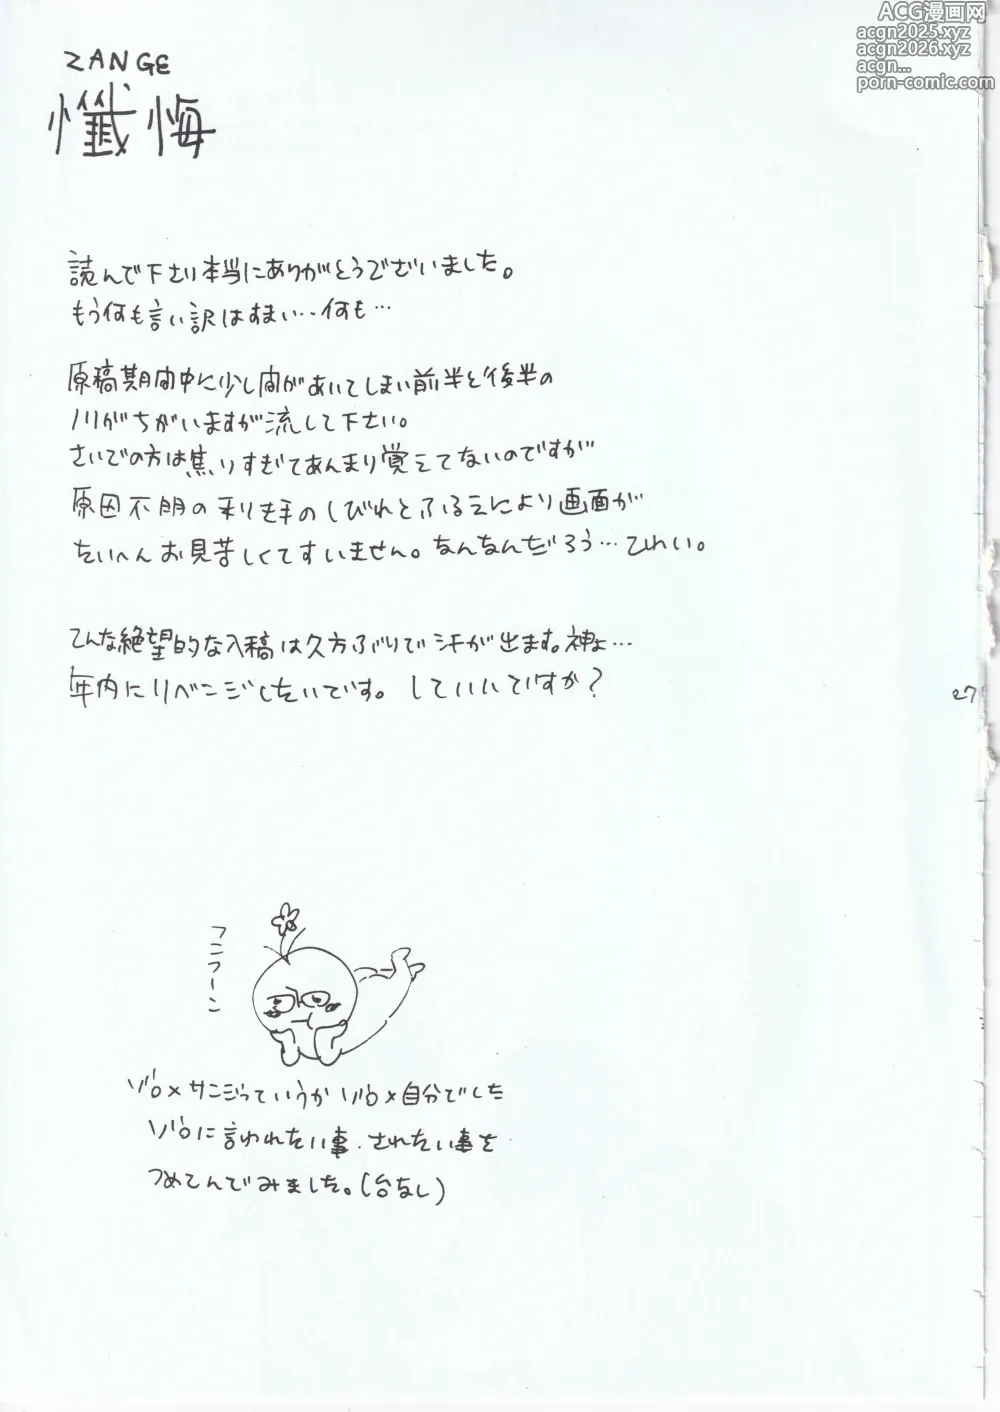 ACG漫画网
acgn2025.xyz
acgn2026.xyz
acgn...
porn-comic.com
ZANGE
懺悔
読んで下さり本当にありがとうございました。
もう何も言い訳はすまい‥何も…
原稿期間中に少し間があいてしまい前半と後半の
ノリがちがいますが流して下さい。
さいごの方は焦りすぎてあんまり覚えてないのですが
原因不明の利き手のしびれとふるえにより画面が
たいへんお見苦しくてすいません。なんなんだろう…ひれい。
こんな絶望的な入稿は久方ぶりで汗が出ます。神よ…
年内にリベンジしたいです。していいですか?
27
フンフーン
ゾロ×サンジっていうかゾロ×自分でした
ゾロに言われたい事、されたい事を
つめこんでみました。(台なし)